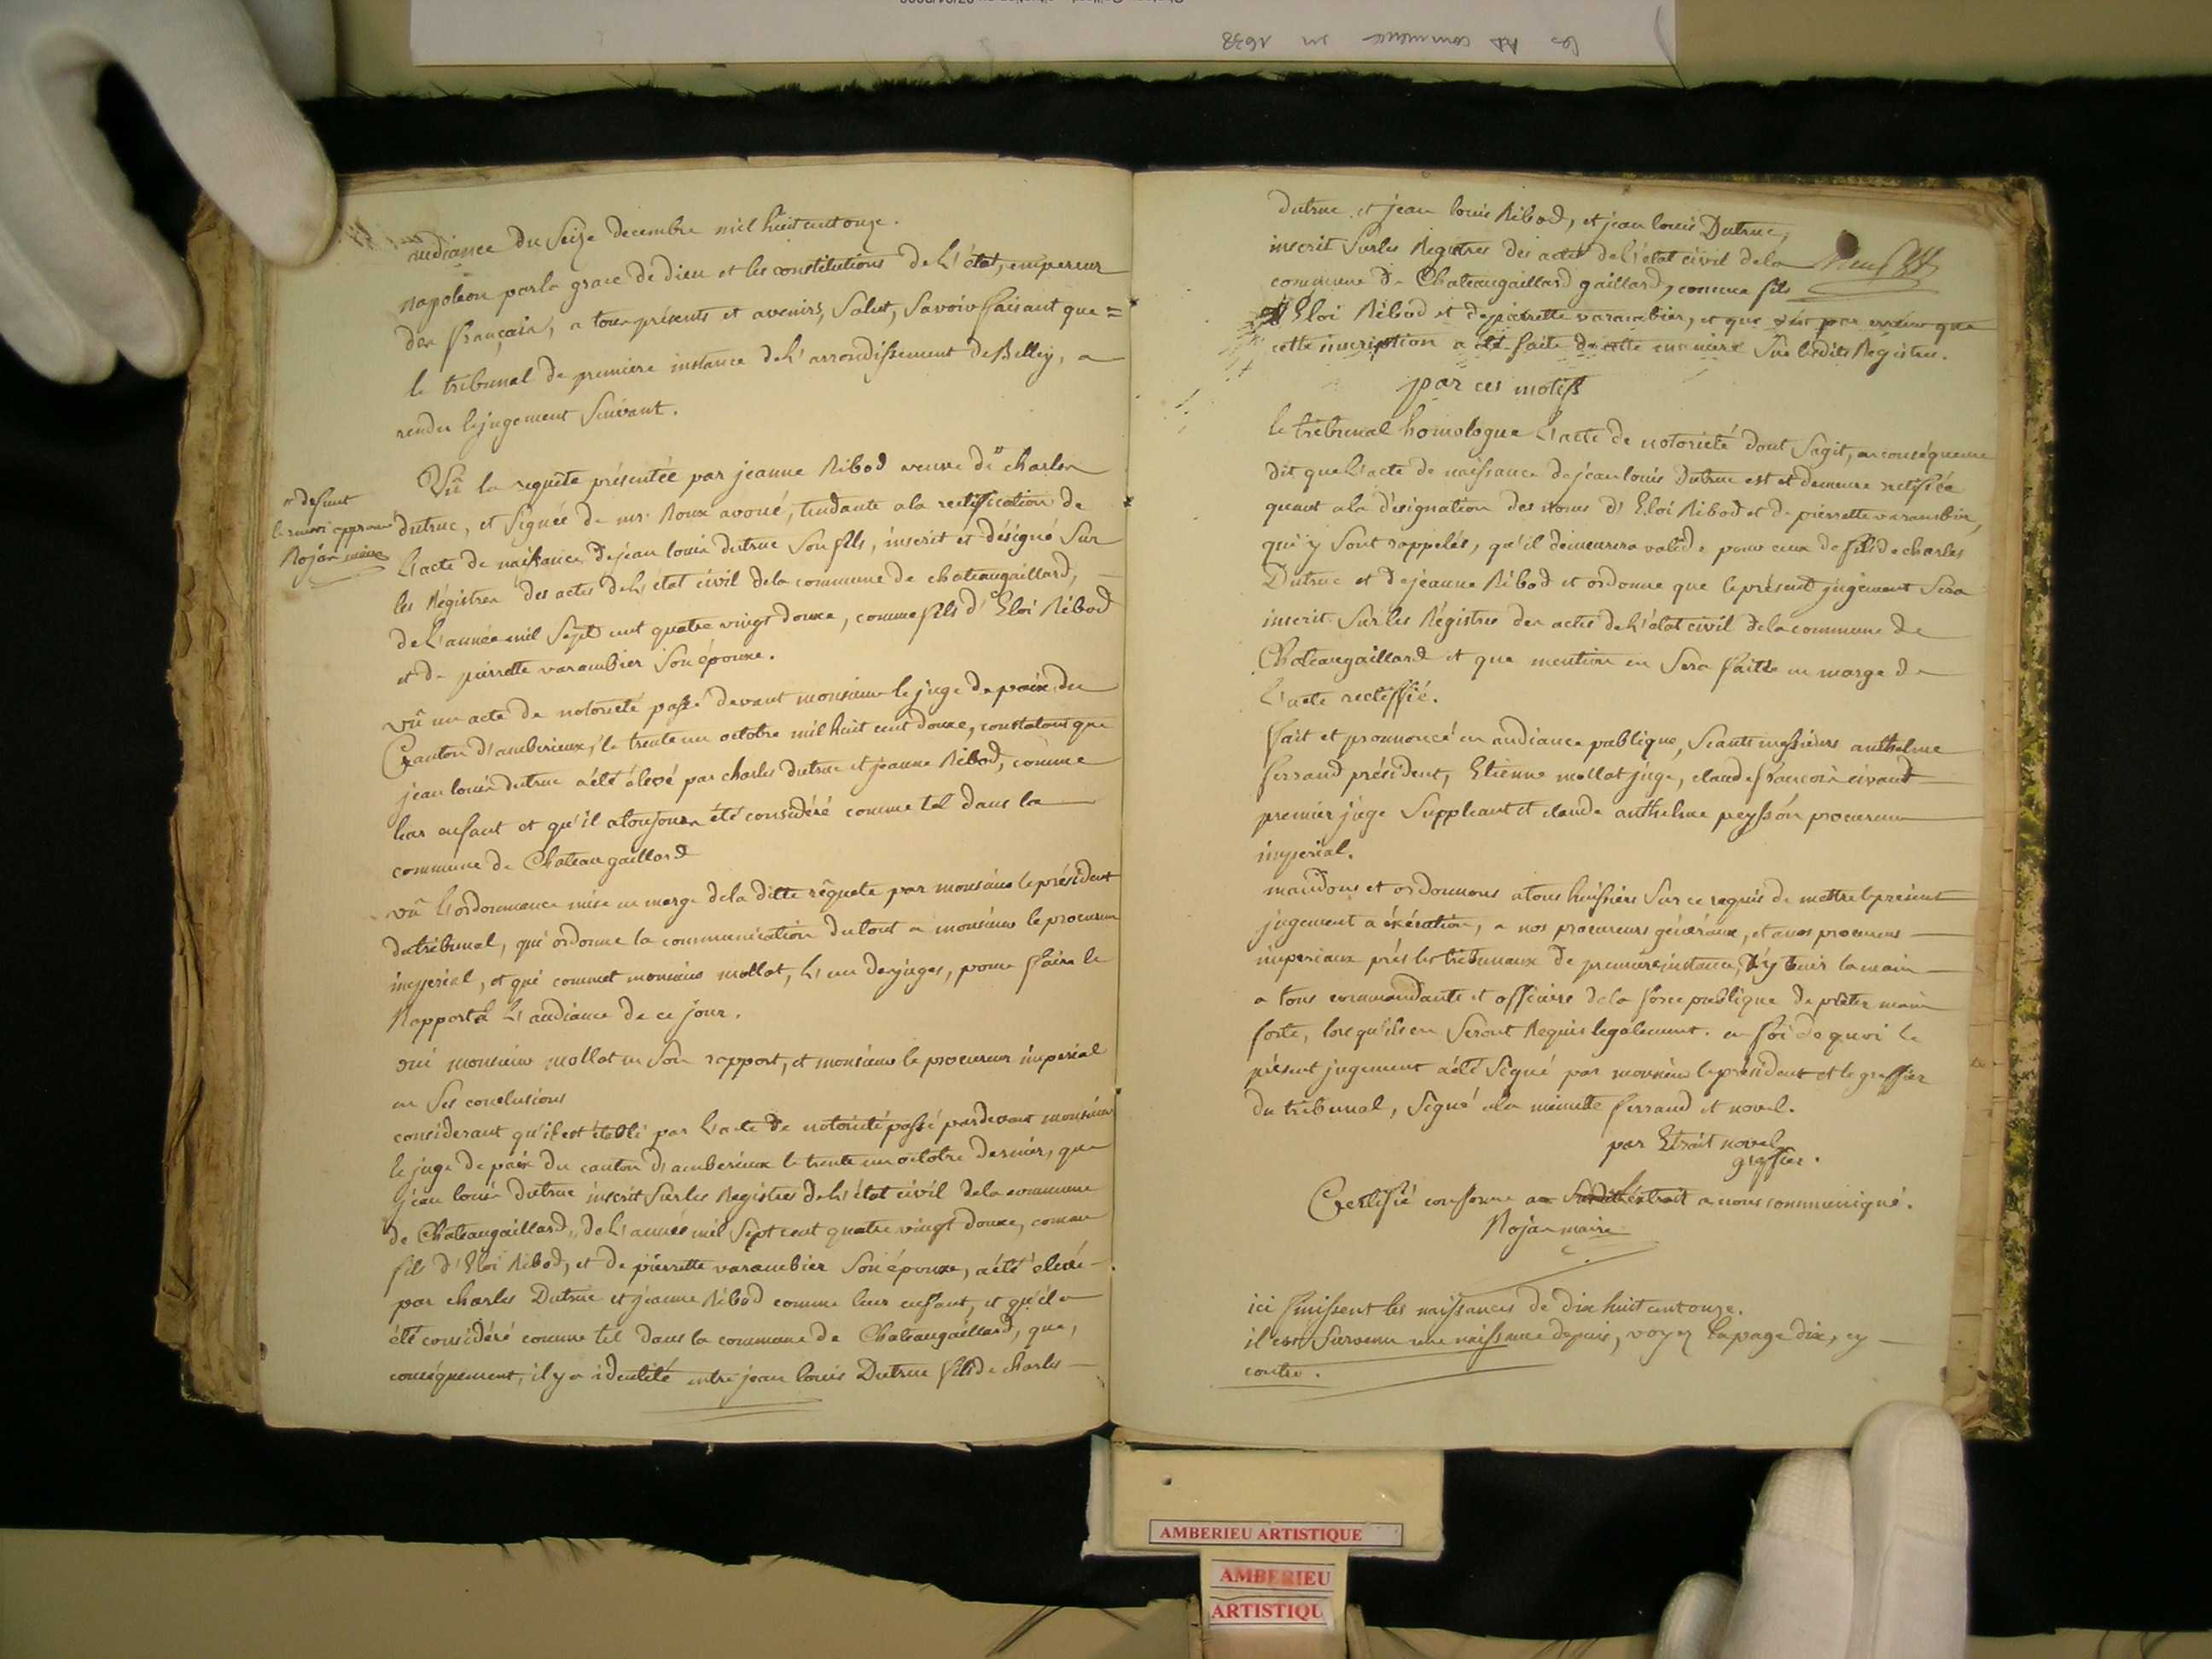 les AD commence en 1638
audiance du Seize decembre mil huit cent onze.
napoleon par la grace de dieu et les constitutions de L'état, empereur
des français, a tous présents et avenirs, Salut, Savoir faisant que =
le tribunal de premiere instance de L'arrondissement de Belley, a
rendu le jugement Suivant.
Vû la requête présentée par jeanne Ribod veuve de " charles
dutruc, et Signée de mr. Roux avoué, tendante a la rectiffication de
L'acte de naissance de jean louis dutruc Son fils, inscrit et désigné Sur
les Régistres des actes de L'état civil de la commune de chateaugaillard,
de L'année mil Sept cent quatre vingt douze, comme fils d'Eloi Ribod
et de pierrette varambier Son épouse.
" defunt
le renvoi approuvé
Rojan maire
vû un acte de notorieté passé devant monsieur le juge de paix du
Canton d'amberieux, le trente un octobre mil huit cent douze, constatant que
jean louis dutruc a été élevé par charles dutruc et jeanne Ribod, comme
leur enfant et qu'il a toujours été considéré comme tel dans la
commune de Chateaugaillard
vû L'ordonnance mise en marge de la ditte rêquete par monsieur le président
du tribunal, qui ordonne la communication du tout a monsieur le procureur
imperial, et qui commet monsieur mollot, L'un des juges, pour faire le
Rapport à L'audiance de ce jour.
oui monsieur mollot en Son rapport, et monsieur le procureur imperial
en Ses conclusions
considerant qu'il est établi par L'acte de notorieté passé pardevant monsieur
le juge de paix du canton d'amberieux le trente un octobre dernier, que
jean louis dutruc inscrit Sur les Registres de L'état civil de la commune
de Chateaugaillard, de L'année mil Sept cent quatre vingt douze, comme
fils d'Eloi Ribod, et de pierrette varambier Son épouse, a été élevé
par charles Dutruc et jeanne Ribod comme leur enfant, et qu'il a
été considéré comme tel dans la commune de Chateaugaillard, que,
conséquement, il y a identité entre jean louis Dutruc fils de charles
dutruc et jean louis Ribod, et jean louis Dutruc,
inscrit Sur les Registres des actes de L'état civil de la
commune de Chateaugaillard gaillard, comme fils
d'Eloi Ribod et de pierrette varambier, et que c'est par erreur que
cette inscription a été faite de cette maniere Sur lesdits Régistres.
par ces motifs
le tribunal homologue L'acte de notorieté dont S'agit, en conséquence
dit que L'acte de naissance de jean louis Dutruc est et demeure rectifié
quant a la désignation des noms d'Eloi Ribod et de pierrette varambier,
qui y Sont rappelés, qu'il demeurera valide pour ceux de fils de charles
Dutruc et de jeanne Ribod et ordonne que le présent jugement Sera
inscrit Sur les Régistres des actes de L'état civil de la commune de
Chateaugaillard et que mention en Sera faitte en marge de
L'acte rectiffié.
fait et prononcé en audiance publique, Séants messieurs anthelme
ferrand président, Etienne mollot juge, claude françois civant
premier juge Suppleant et claude anthelme peysson procureur
imperial.
mandons et ordonnons a tous huissiers Sur ce requis de mettre le présent
jugement a éxécution, a nos procureurs généraux, et a nos procureurs
imperiaux près les tribunaux de premiere instance, d'y tenir la main
a tous commandants et officiers de la force publique de prêter main
forte, lorsqu'ils en Seront Requis legalement. en foi de quoi le
présent jugement a été Signé par monsieur le président et le greffier
du tribunal, Signé a la minutte ferrand et novel.
par Extrait novel
greffier.
Certifié conforme au Susdit extrait a nous communiqué.
Rojan maire
ici finissent les naissances de dix huit cent onze.
il est Survenu une naissance depuis, voyez la page dix, cy
contre.
AMBERIEU ARTISTIQUE
AMBERIEU
ARTISTIQU